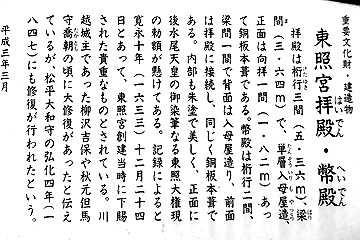 重要文化財・建造物
東照宮拝殿・幣殿
はいでん
へいでん
拝殿は桁行三間(五・三六m)、梁
間(三・六四m)で、単層入母屋造、
正面は向拝一間(一・八二m)あっ
て銅板本葺である。幣殿は桁行二間、
梁間一間で背面は入母屋造り、前面
は拝殿に接続し、同じく銅板本葺で
ある。内部も朱塗で美しく、正面に
後水尾天皇の御染筆なる東照大権現
の勅額が懸けてある。記録によると
寛永十年(一六三三)十二月二十四
日とあって、東照宮創建当時に下賜
された貴重なものとされている。川
越城主であった柳沢吉保や秋元但馬
守喬朝の頃に大修復があったと伝え
ているが、松平大和守の弘化四年(一
八四七)にも修復が行われたという。
平成三年三月